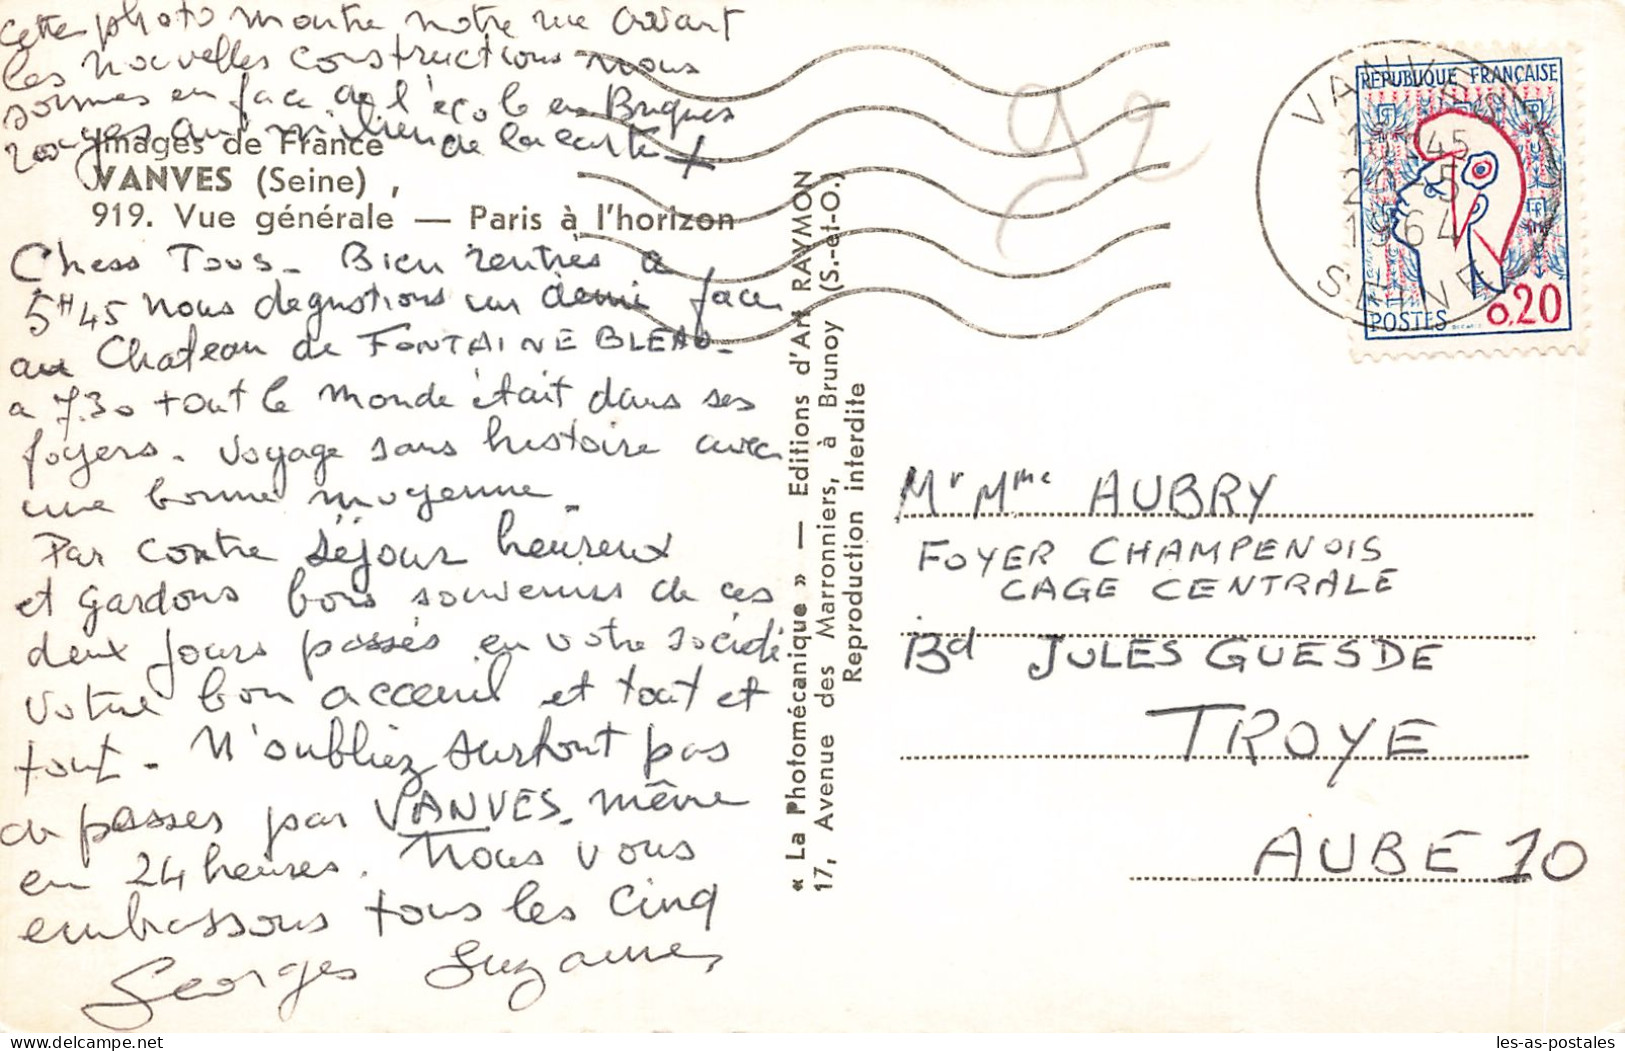 Cette photo montre notre rue avant
les nouvelles constructions nous
sommes en face de l'école en Briques
rouges au milieu de la carte +
Images de France
VANVES (Seine)
919. Vue générale — Paris à l'horizon
Chess Tous - Bien rentrés a
5H45 nous degustions un demi face
au Chateau de FONTAINEBLEAU -
a 7.30 tout le monde était dans ses
foyers - Voyage sans histoire avec
une bonne moyenne -
Par contre séjour heureux
et gardons bons souvenirs de ces
deux jours passés en votre société
votre bon acceuil et tout et
tout - N'oubliez surtout pas
de passer par VANVES - même
en 24 heures. Nous vous
embrassons tous les Cinq
Georges Suzanne
« La Photomécanique » — Editions d'Art RAYMON
17, Avenue des Marronniers, à Brunoy (S.-et-O.)
Reproduction interdite
92
VANVES
18H45
20-5
1964
SEINE
REPUBLIQUE FRANÇAISE
POSTES
0,20
Mr Mme AUBRY
FOYER CHAMPENOIS
CAGE CENTRALE
Bd JULES GUESDE
TROYE
AUBE 10
les-as-postales